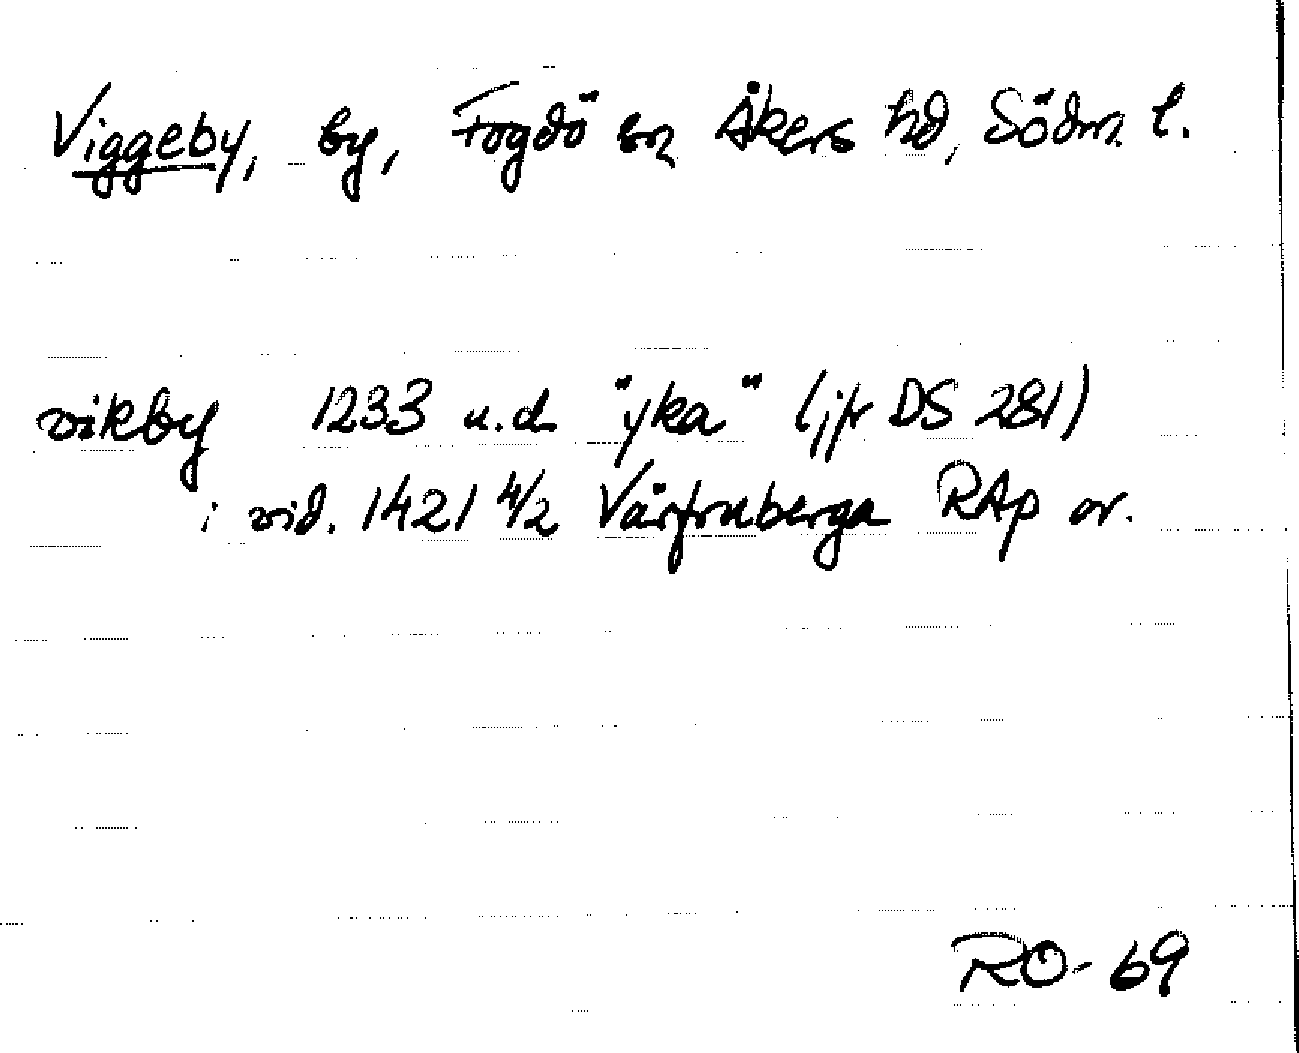 Viggeby, by, Fogdö sn Åkers hd, Södm. l.
vikby 1233 u.d. "yka" (jfr DS 281)
i vid. 1421 4/2 Vårfruberga RAp or.
RO-69